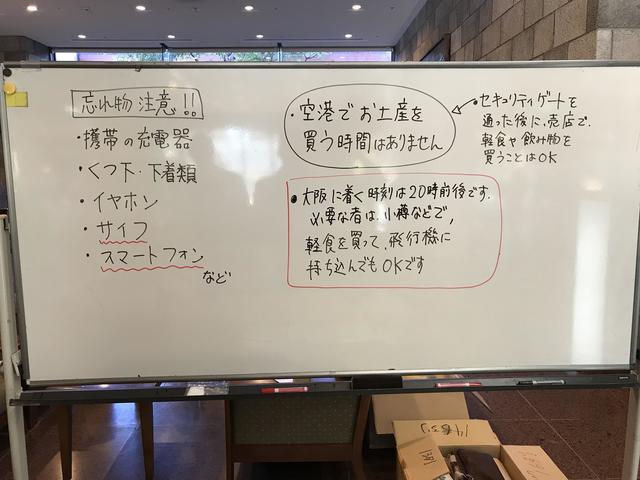 忘れ物注意!!
・携帯の充電器
・くつ下・下着類
・イヤホン
・サイフ
・スマートフォン
など
・空港でお土産を
買う時間はありません
・セキュリティゲートを
通った後に、売店で、
軽食や飲み物を
買うことはOK
・大阪に着く時刻は20時前後です.
必要な者は、小樽などで,
軽食を買って、飛行機に
持ち込んでもOKです